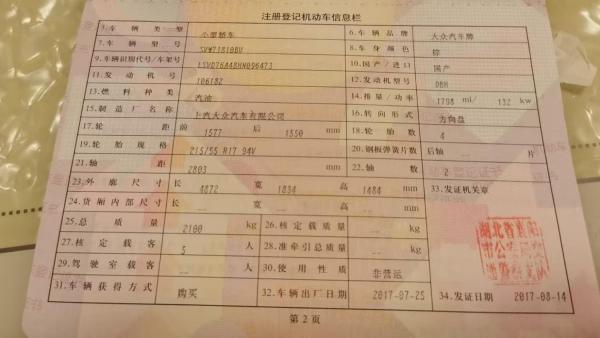 注册登记机动车信息栏
5.车辆类型 小型轿车 6.车辆品牌 大众汽车牌
7.车辆型号 SVW71810BU 8.车身颜色 棕
9.车辆识别代号/车架号 LSVD76A48HN096473 10.国产/进口 国产
11.发动机号 106182 12.发动机型号 DBH
13.燃料种类 汽油 14.排量/功率 1798 ml/ 132 kw
15.制造厂名称 上汽大众汽车有限公司 16.转向形式 方向盘
17.轮距 前 1577 后 1550 mm 18.轮胎数 4
19.轮胎规格 215/55 R17 94V 20.钢板弹簧片数 后轴 -- 片
21.轴距 2803 mm 22.轴数 2
23.外廓尺寸 长 4872 宽 1834 高 1484 mm 33.发证机关章
24.货厢内部尺寸 长 -- 宽 -- 高 -- mm
25.总质量 2100 kg 26.核定载质量 -- kg
27.核定载客 5 人 28.准牵引总质量 -- kg
29.驾驶室载客 -- 人 30.使用性质 非营运
31.车辆获得方式 购买 32.车辆出厂日期 2017-07-25 34.发证日期 2017-08-14
第2页